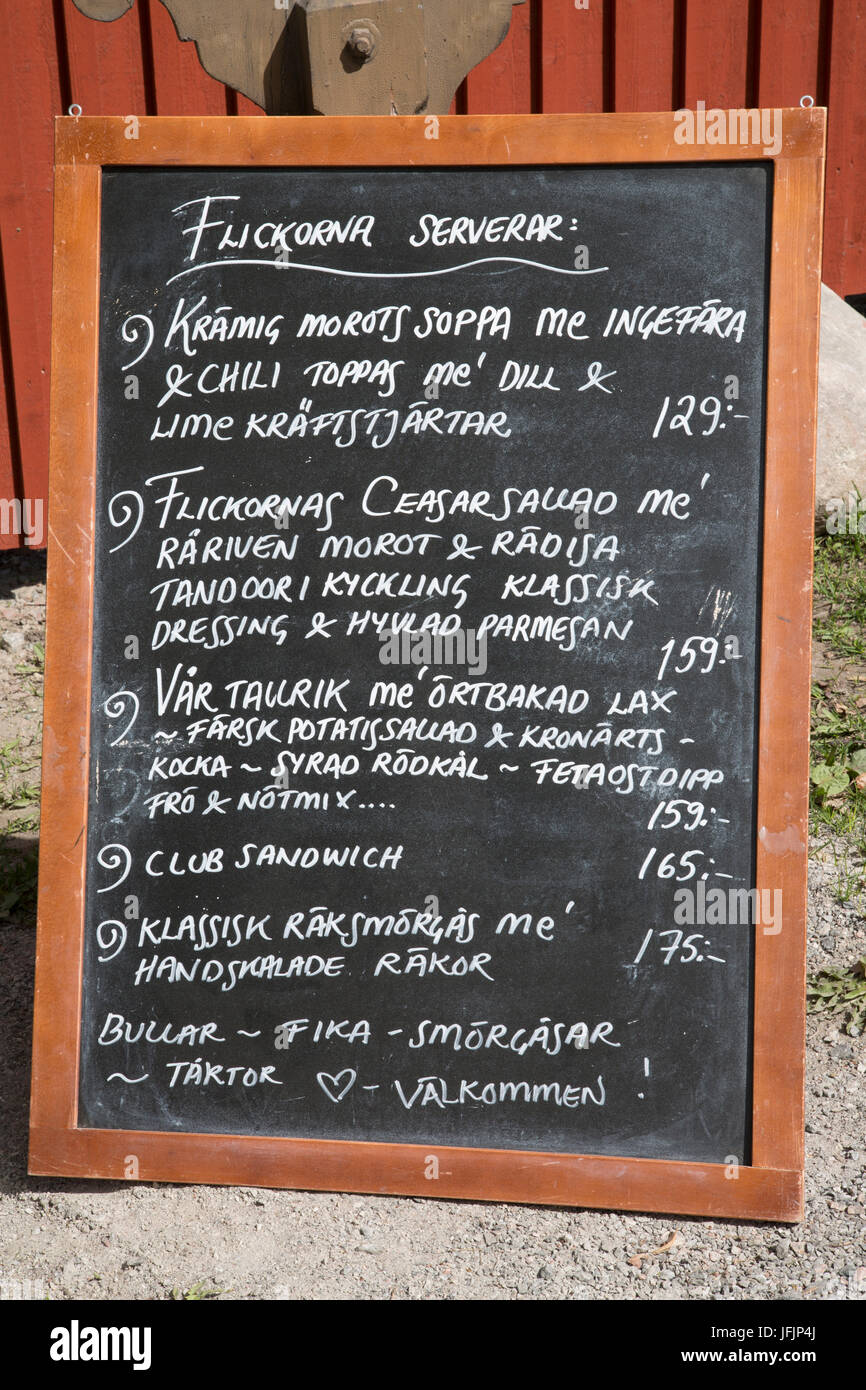 FLICKORNA SERVERAR:
KRÄMIG MOROTSSOPPA me INGEFÄRA
& CHILI TOPPAS me' DILL &
LIME KRÄFTSTJÄRTAR 129:-
FLICKORNAS CEASARSALLAD me'
RÅRIVEN MOROT & RÄDISA
TANDOORI KYCKLING KLASSISK
DRESSING & HYVLAD PARMESAN
159:-
VÅR TALLRIK me' ÖRTBAKAD LAX
~ FÄRSK POTATISSALLAD & KRONÄRTS-
KOCKA ~ SYRAD RÖDKÅL ~ FETAOSTDIPP
FRÖ & NÖTMIX.... 159:-
CLUB SANDWICH 165:-
KLASSISK RÄKSMÖRGÅS me'
HANDSKALADE RÄKOR 175:-
BULLAR ~ FIKA - SMÖRGÅSAR
~ TÅRTOR ♡ - VÄLKOMMEN!
alamy
Image ID: JFJP4J
www.alamy.com